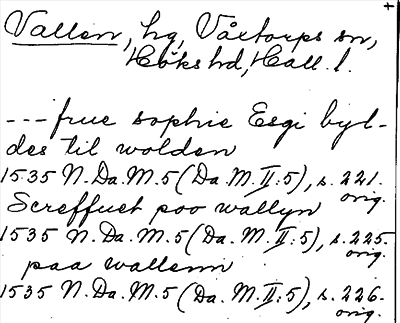 Vallen, hg, Våxtorps sn,
Höks hd, Hall. l.
--- frue sophie Esgi byl-
des til wolden
1535 N. Da. M. 5 (Da. M. II:5), s. 221.
orig.
Screffuet poo wallyn
1535 N. Da. M. 5 (Da. M. II:5), s. 225.
orig.
paa wallenn
1535 N. Da. M. 5 (Da. M. II:5), s. 226.
orig.